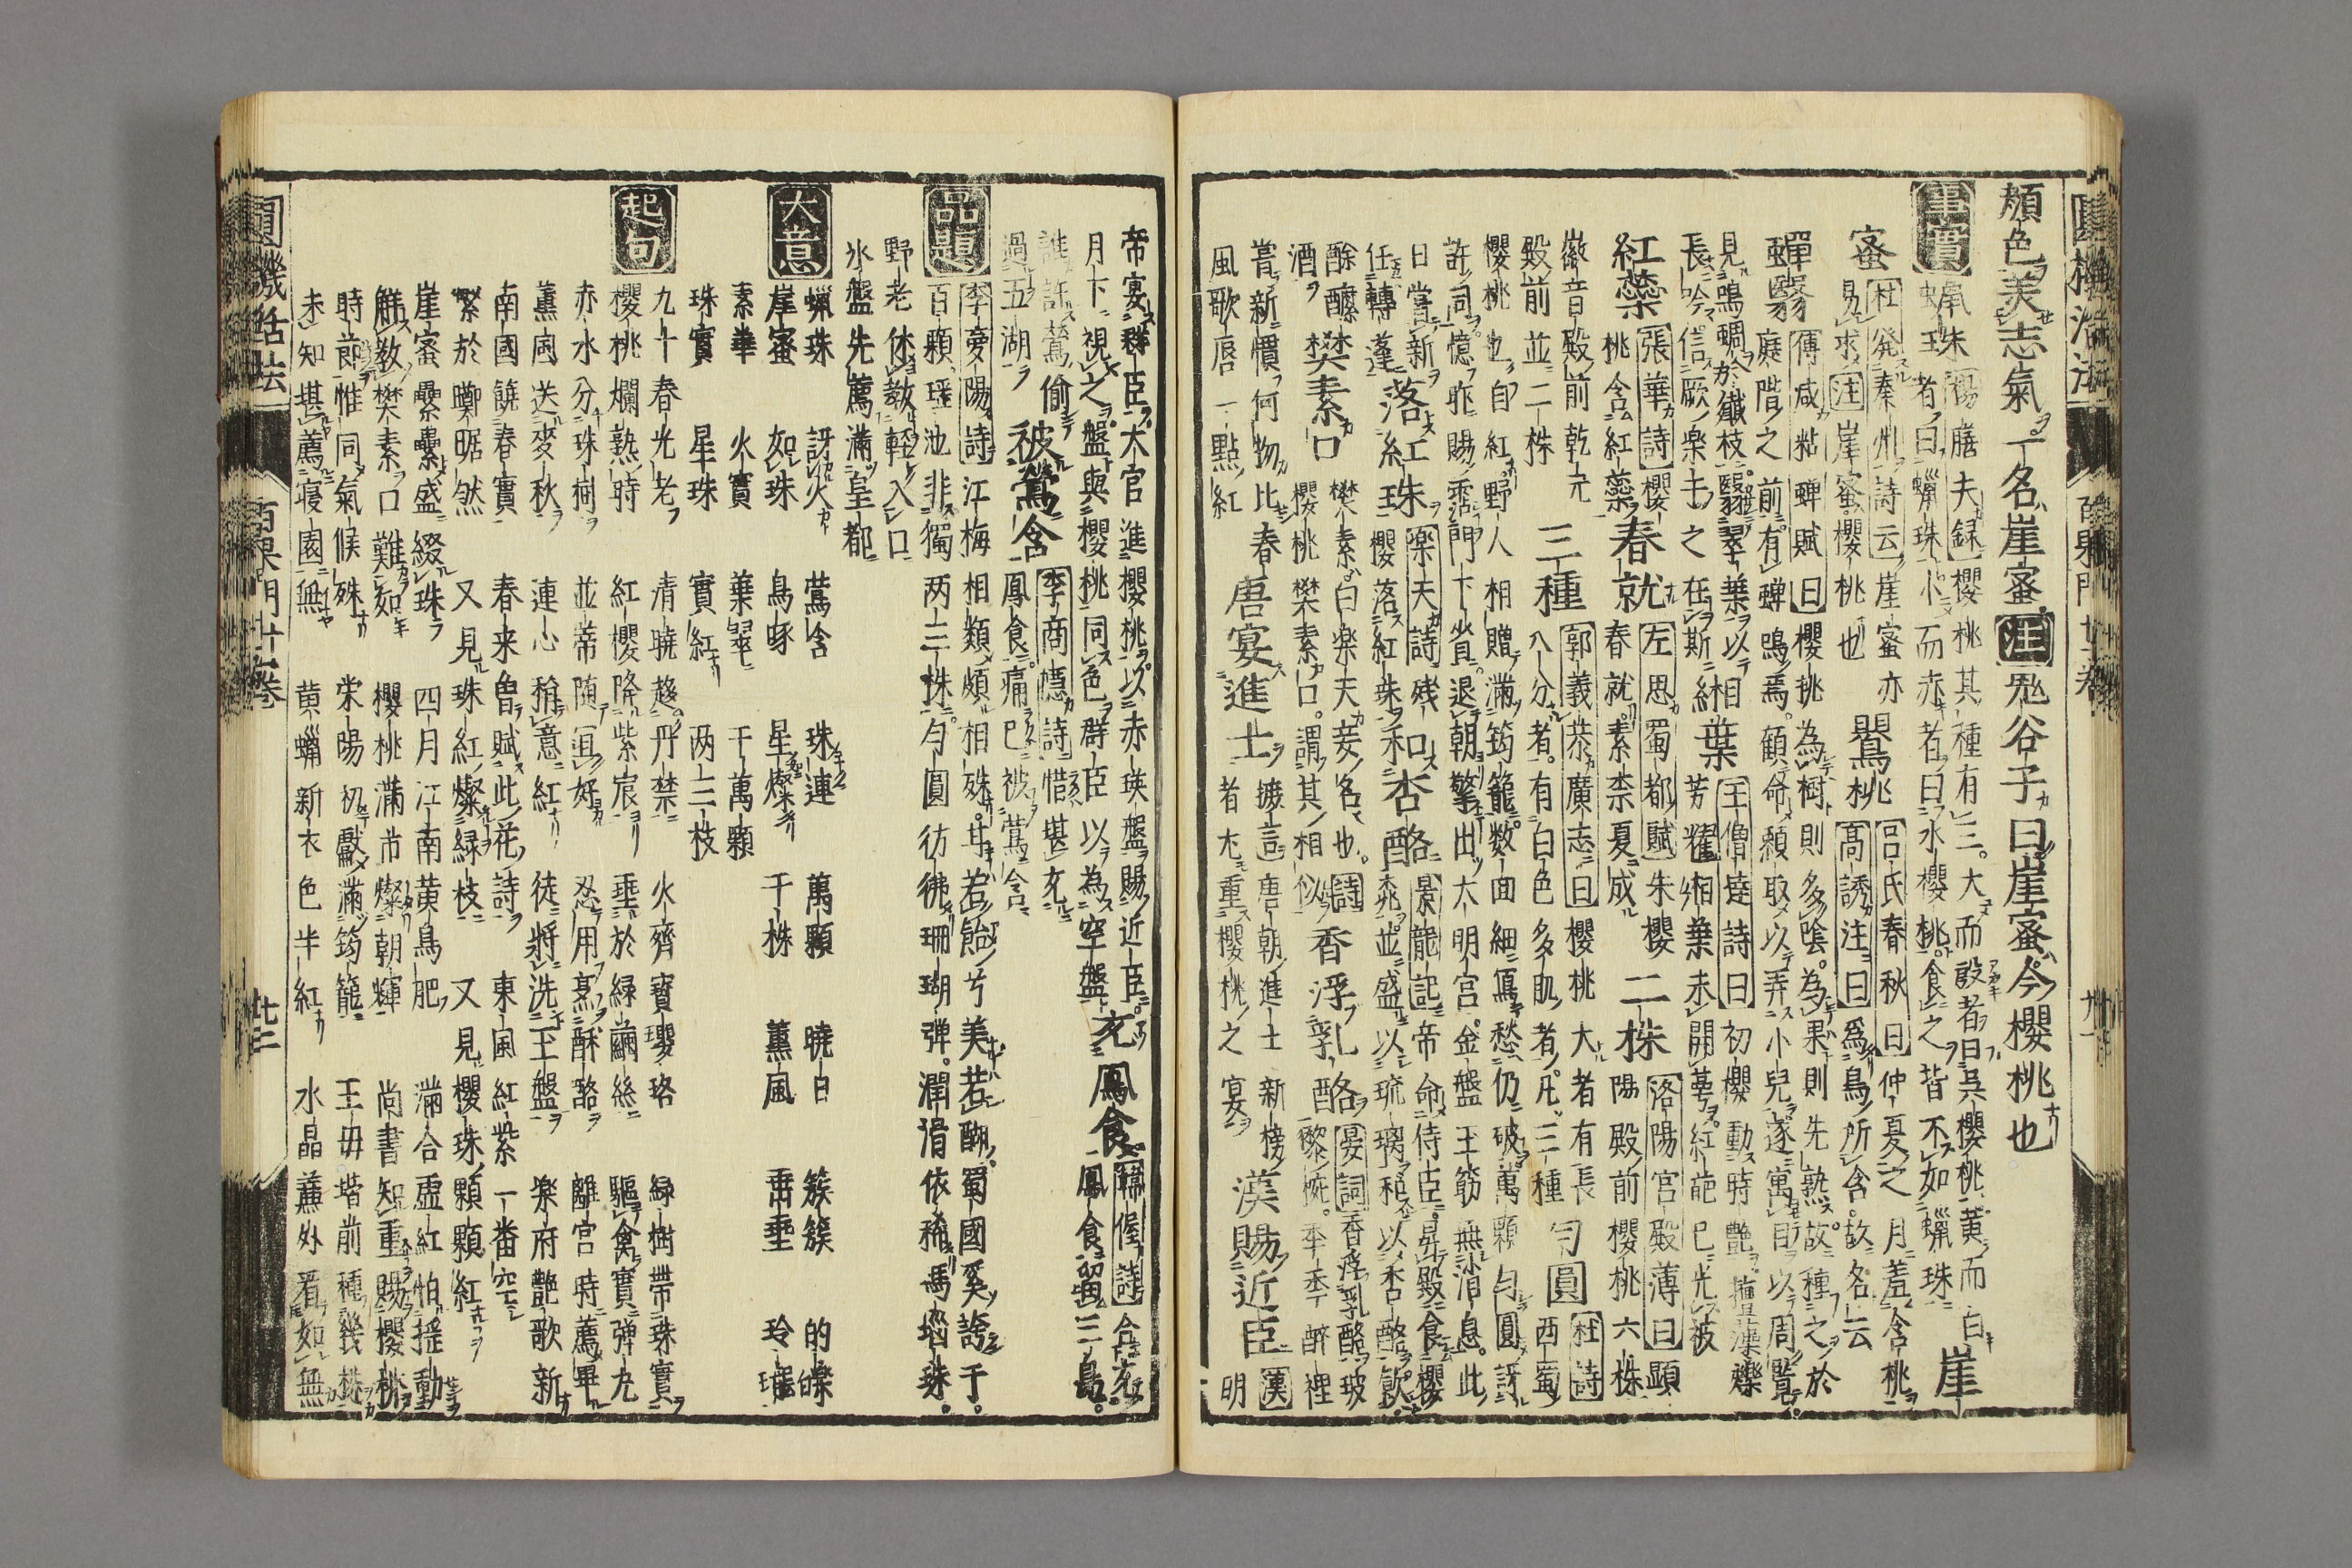 顏色美志氣一名崖蜜注鬼谷子曰崖蜜今櫻桃也
事實
蠙珠
櫻桃其種有三大而殷者曰吳櫻桃黃而白
者曰蠟珠小而赤者曰水櫻桃食之皆不如蠟珠
崖蜜
杜發秦州詩云崖蜜亦
易求注崖蜜櫻桃也
鸎桃
呂氏春秋曰仲夏之月羞含桃
高誘注曰爲鳥所含故名云
蟬翳
傅咸粘蟬賦曰櫻桃為樹則多陰為果則先熟故種之於
庭階之前有蟬鳴焉顧命黏取以弄小兒遂寓目以周覽
見鳴蜩於纖枝翳翠葉以相
長吟信厥樂之在斯
緗葉
王僧達詩曰初櫻動時艷
芳耀緗葉未開萼紅葩已光
紅蘂
張華詩櫻
桃含紅蘂
春就
左思蜀都賦朱櫻
春就素柰夏成
二株
洛陽宮殿薄曰顯
陽殿前櫻桃六株
徽音殿前乾元
殿前並二株
三種
郭義恭廣志曰櫻桃大者有長
八分者有白色多肌者凡三種
勻圓
杜詩
西蜀
櫻桃也自紅野人相贈滿筠籠數回細寫愁仍破萬顆勻圓訝
許同憶昨賜霑門下省退朝擎出大明宮金盤玉筯無消息此
日嘗新
任轉蓬
落紅珠
樂天詩殘
櫻落紅珠
和杏酪
景龍記帝命侍臣昇殿食櫻
桃並盛以琉璃和以杏酪飲
酴醾
酒
樊素口
樊素白樂天妾名也詩
櫻桃樊素口謂其相似
香浮乳酪
晏詞香浮乳酪玻
黎椀年年醉裡
嘗新慣何物比春
風歌唇一點紅
唐宴進士
摭言唐朝進士新榜
者尤重櫻桃之宴
漢賜近臣
漢
明
帝宴群臣大官進櫻桃以赤瑛盤賜近臣
月下視之盤與櫻桃同色群臣以為空盤
充鳳食
韓偓詩合充
鳳食留三島
誰許鶯偷
過五湖
被鶯含
李商隱詩惜堪充
鳳食痛已被鶯含
品題
李夢陽詩江梅相類頗相殊甘若飴兮美若醐蜀國奚誇千
百顆瑶池非獨兩三株勻圓彷彿珊瑚彈潤滑依稀瑪瑙珠
野老休教輕入口
氷盤先薦滿皇都
大意
蠟珠 訝火 鶯含 珠連 萬顆 曉日 簇簇 的皪
崖蜜 如珠 鳥啄 星燦 千株 薰風 垂垂 玲瓏
素華 火實 葉翠 千萬顆
珠實 星珠 實紅 兩三枝
起句
九十春光老 清曉趍丹禁 火齊寶瓔珞 綠樹帶珠實
櫻桃爛熟時 紅櫻降紫宸 垂於綠繭絲 驅禽實彈丸
赤水分珠樹 並蒂隨宜好 忍用烹酥酪 離宮時薦畢
薰風送麥秋 連心稱意紅 徒將洗玉盤 樂府艷歌新
南國饒春實 春来曾賦此花詩 東風紅紫一番空
繁於曒踞然 又見珠紅燦綠枝 又見櫻珠顆顆紅
崖蜜纍纍盛綴珠 四月江南黃鳥肥 滿合虛紅怕搖動
鮮教樊素口難如 櫻桃滿市燦朝輝 尚書知重賜櫻桃
時節惟同氣候殊 宋陽初獻滿筠籠 王母堦前種幾株
未知堪薦寢園無 黃蠟新衣色半紅 水晶簾外看如無
圓機活法
百果門廿一卷
廿二